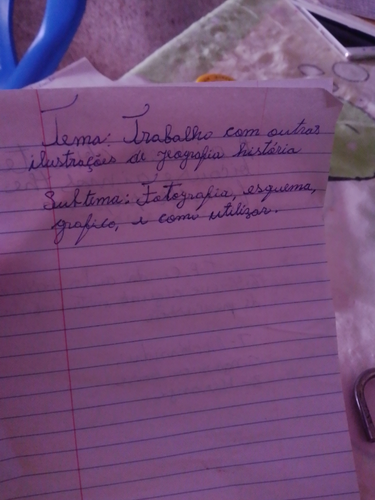 Tema: Trabalho com outras
ilustrações de geografia história
Subtema: Fotografia, esquema,
grafico, e como utilizar.